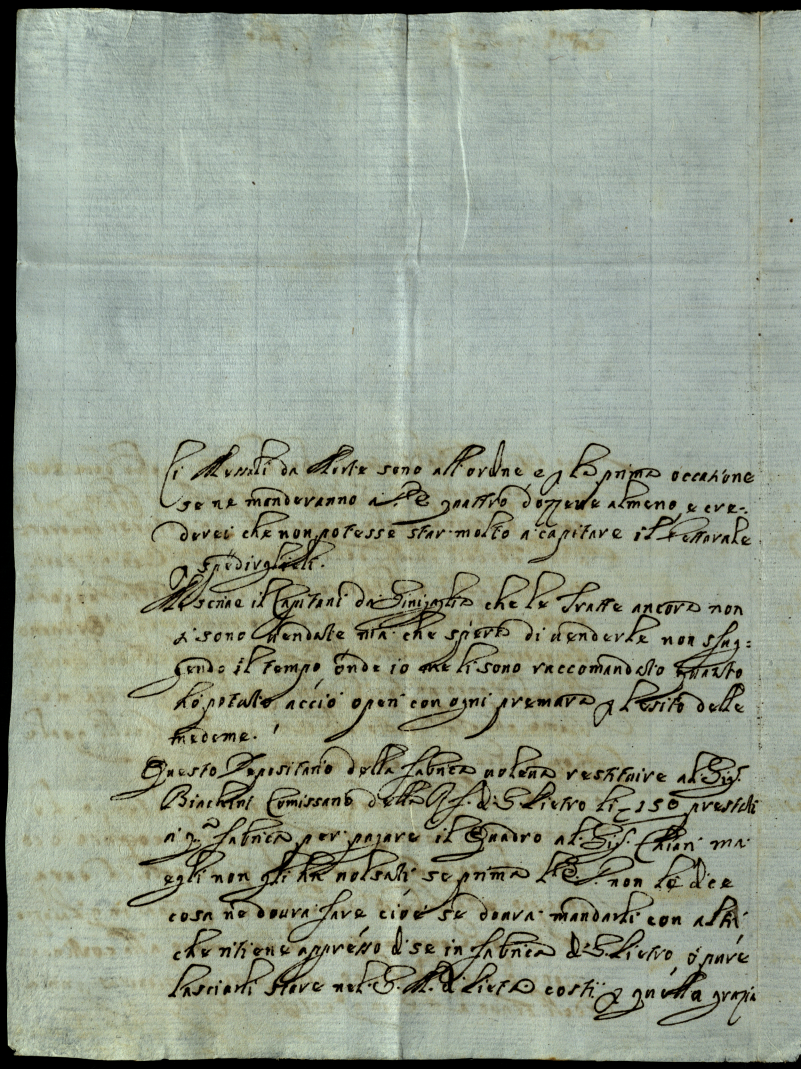 Li Messali da Morte sono all'ordine, e p la prima occasione
se ne manderanno a V.E. quattro dozzene almeno, e cre-
derei che non potesse star molto a capitare il Vetturale
p spedirglieli.
Mi scrive il Capitani da Sinigaglia che le Tratte ancora non
si sono vendute ma che spera di venderle non sfug=
gendo il tempo, onde io me li sono raccomandato quanto
hò potuto acciò operi con ogni premura p l'esito delle
medeme.
Questo Depositario della fabrica voleva restituire al Sig.
Bianchini Comissario della R. f. di S. Pietro li 150 prestiti
a q.a fabrica per pagare il Quadro al Sig. Chiari ma
egli non gli hà volsuti se prima V.E. non le dice
cosa ne dovrà fare cioè se dovrà mandarli con altri
che ritiene appresso di se in fabrica di S. Pietro, ò pure
lasciarli stare nel S. M. di Pietà costì p quella grazia